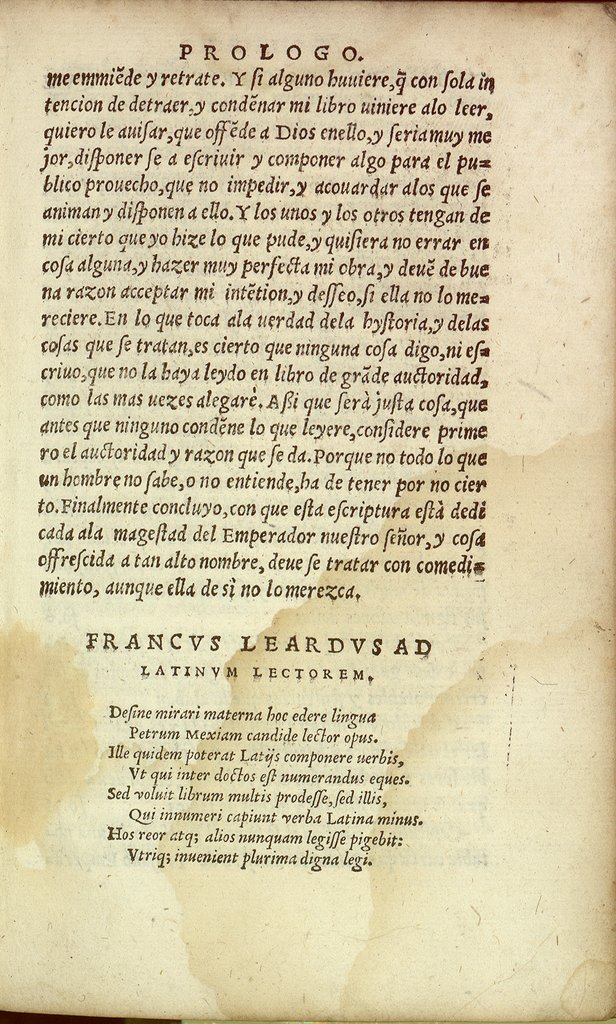 PROLOGO.
me emmiẽde y retrate. Y ſi alguno huuiere,q̃ con ſola in
tencion de detraer,y condẽnar mi libro uiniere alo leer,
quiero le auiſar,que offẽde a Dios enello,y ſeria muy me
jor,diſponer ſe a eſcriuir y componer algo para el pu=
blico prouecho,que no impedir,y acouardar alos que ſe
animan y diſponen a ello.Y los unos y los otros tengan de
mi cierto que yo hize lo que pude,y quiſiera no errar en
coſa alguna,y hazer muy perfecta mi obra,y deuẽ de bue
na razon acceptar mi intẽtion,y deſſeo,ſi ella no lo me=
reciere.En lo que toca ala uerdad dela hyſtoria,y delas
coſas que ſe tratan,es cierto que ninguna coſa digo,ni eſ=
criuo,que no la haya leydo en libro de grãde auctoridad,
como las mas uezes alegarè.Aßi que ſerà juſta coſa,que
antes que ninguno condẽne lo que leyere,conſidere prime
ro el auctoridad y razon que ſe da.Porque no todo lo que
un hombre no ſabe,o no entiende,ha de tener por no cier
to.Finalmente concluyo,con que eſta eſcriptura eſtà dedi
cada ala mageſtad del Emperador nueſtro ſeñor,y coſa
offreſcida a tan alto nombre, deue ſe tratar con comedi=
miento, aunque ella de sì no lo merezca.
FRANCVS LEARDVS AD
LATINVM LECTOREM.
Deſine mirari materna hoc edere lingua
Petrum Mexiam candide lector opus.
Ille quidem poterat Latijs componere uerbis,
Vt qui inter doctos eſt numerandus eques.
Sed voluit librum multis prodeſſe,ſed illis,
Qui innumeri capiunt verba Latina minus.
Hos reor atq; alios nunquam legiſſe pigebit:
Vtriq; inuenient plurima digna legi.